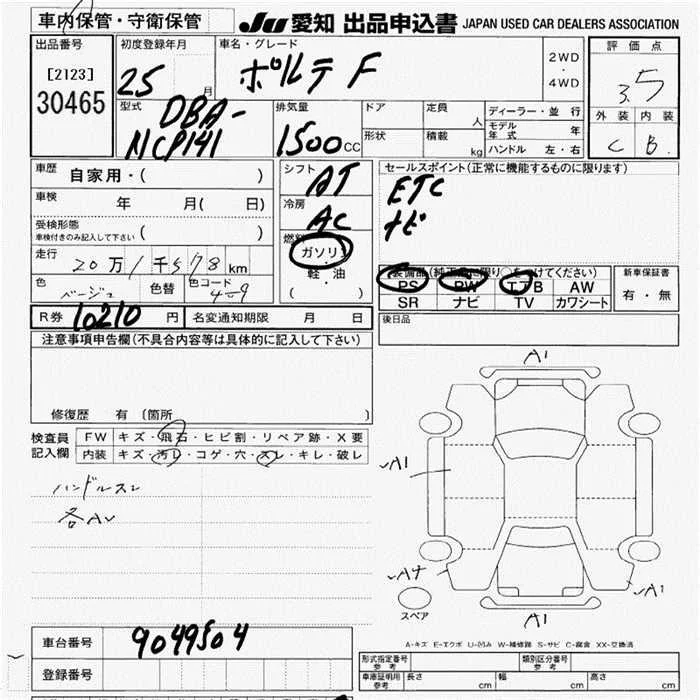 車内保管・守衛保管
JU 愛知 出品申込書 JAPAN USED CAR DEALERS ASSOCIATION
出品番号 初度登録年月 車名・グレード 評価点
[2123] 25 月 ポルテ F 2WD・4WD 3.5
30465
型式 DBA- 排気量 ドア 定員 人 ディーラー・並行 外装 内装
NCP141 1500 CC 形状 積載 kg モデル年式 年 C B
ハンドル 左・右
車歴 自家用・( ) シフト AT セールスポイント(正常に機能するものに限ります)
車検 年 月( 日) 冷房 AC ETC
受検形態 ( ) ナビ
車検付きのみ記入して下さい
燃料 ガソリン
走行 20万1千578km ・軽・油 装備品(純正品に限り○をつけてください) 新車保証書
( ) PS PW エアB AW 有・無
色 ベージュ 色替 色コード 4σ9 SR ナビ TV カワシート
R券 10210 円 名変通知期限 月 日 後日品
注意事項申告欄(不具合内容等は具体的に記入して下さい)
修復歴 有 〔箇所 〕
検査員 FW キズ・飛石・ヒビ割・リペア跡・X要
記入欄 内装 キズ・汚レ・コゲ・穴・スレ・キレ・破レ
ハンドルスレ
A1
A1
A4
A1
A1
スペア
A-キズ E-エクボ U-凹ミ W-補修跡 S-サビ C-腐食 XX-交換済
車台番号 9049504
登録番号
形式指定番号 参考 類別区分番号 参考
車庫証明用 参考 長さ cm 幅 cm 高さ cm